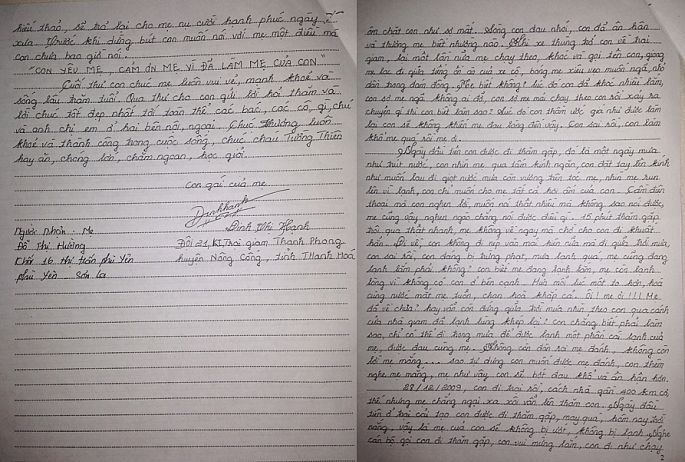 hiếu thảo, sẽ trả lại cho mẹ nụ cười hạnh phúc ngày
xưa. Trước khi dừng bút con muốn nói với mẹ một điều mà
con chưa bao giờ nói.
"CON YÊU MẸ, CẢM ƠN MẸ VÌ ĐÃ LÀM MẸ CỦA CON"
Cuối thư con chúc mẹ luôn vui vẻ, mạnh khoẻ và
sống lâu trăm tuổi. Qua thư cho con gửi lời hỏi thăm và
lời chúc tốt đẹp nhất tới toàn thể các bác, các cô, gì, chú
và anh chị em ở hai bên nội, ngoại. Chúc Phương luôn
khoẻ và thành công trong cuộc sống, chúc cháu Tường Thiên
hay ăn, chóng lớn, chăm ngoan, học giỏi.
Con gái của mẹ
Đinhhanh
Đinh Thị Hạnh
Người nhận: Mẹ
Đỗ Thị Hường
Đội 21, K1, Trại giam Thanh Phong
Khối 16 thị trấn phù Yên
huyện Nông Cống, tỉnh Thanh Hoá
phù Yên Sơn la
ân chất con như sợ mất. Sống con đau nhói, con đã ân hận
và thương mẹ biết nhường nào. Khi xe thùng trở con về trại
giam, lại một lần nữa mẹ chạy theo, khóc và gọi tên con, giọng
mẹ lạc đi giữa tiếng ồn ào của xe cộ, bóng mẹ xiêu vẹo muốn ngã, nhỏ
dần trong đám đông. Mẹ biết không? lúc đó con đã khóc nhiều lắm,
con sợ mẹ ngã không ai đỡ, con sợ mẹ mải chạy theo con rồi xảy ra
chuyện gì thì con biết làm sao? Lúc đó con thầm ước giá như được làm
lại con sẽ không khiến mẹ đau lòng đến vậy. Con sai rồi, con làm
khổ mẹ quá mẹ ơi.
Ngày đầu tiên con được đi thăm gặp, đó là một ngày mưa
như trút nước, con nhìn mẹ qua tấm kính ngăn, con đặt tay lên kính
như muốn lau đi giọt nước mưa còn vương trên tóc mẹ, nhìn mẹ run
lên vì lạnh, con chỉ muốn cho mẹ tất cả hơi ấm của con. Cầm điện
thoại mà con nghẹn lời, muốn nói thật nhiều mà không sao nói được,
mẹ cũng vậy nghẹn ngào chẳng nói được điều gì. 15 phút thăm gặp
trôi qua thật nhanh, mẹ không về ngay mà chờ cho con đi khuất
hẳn. Đi về, con không đi nép vào mái hiên nữa mà đi giữa trời mưa,
con sai rồi, con đang bị trừng phạt, mưa lạnh quá, mẹ cũng đang
lạnh lắm phải không? con biết mẹ đang lạnh lắm, mẹ còn lạnh
lòng vì không có con ở bên cạnh. Mưa mỗi lúc một to hơn, hoà
cùng nước mắt mẹ tuôn, chan hoà khắp cả. Ôi! mẹ ơi!!! Mẹ
đã về chưa? hay vẫn còn đứng giữa trời mưa nhìn theo con qua cánh
cửa nhà giam đã lạnh lùng khép lại? con chẳng biết phải làm
sao, chỉ có thể đi trong mưa để được lạnh một phần cái lạnh của
mẹ, được đau cùng mẹ. Không còn đòn roi mẹ đánh, không còn
lời mẹ mắng... sao tự dưng con muốn được mẹ đánh, con thèm
nghe mẹ mắng, mẹ như vậy con sẽ bớt đau khổ và ân hận hơn.
28/12/2009, con đi trại rồi, cách nhà gần 400 km cơ,
thế nhưng mẹ chẳng ngại xa xôi vẫn lên thăm con. Ngày đầu
tiên ở trại cải tạo con được đi thăm gặp, may quá, hôm nay trời
nắng, vậy là mẹ của con sẽ không bị ướt, không bị lạnh. Nghe
cán bộ gọi con đi thăm gặp, con vui mừng lắm, con đi như chạy
2